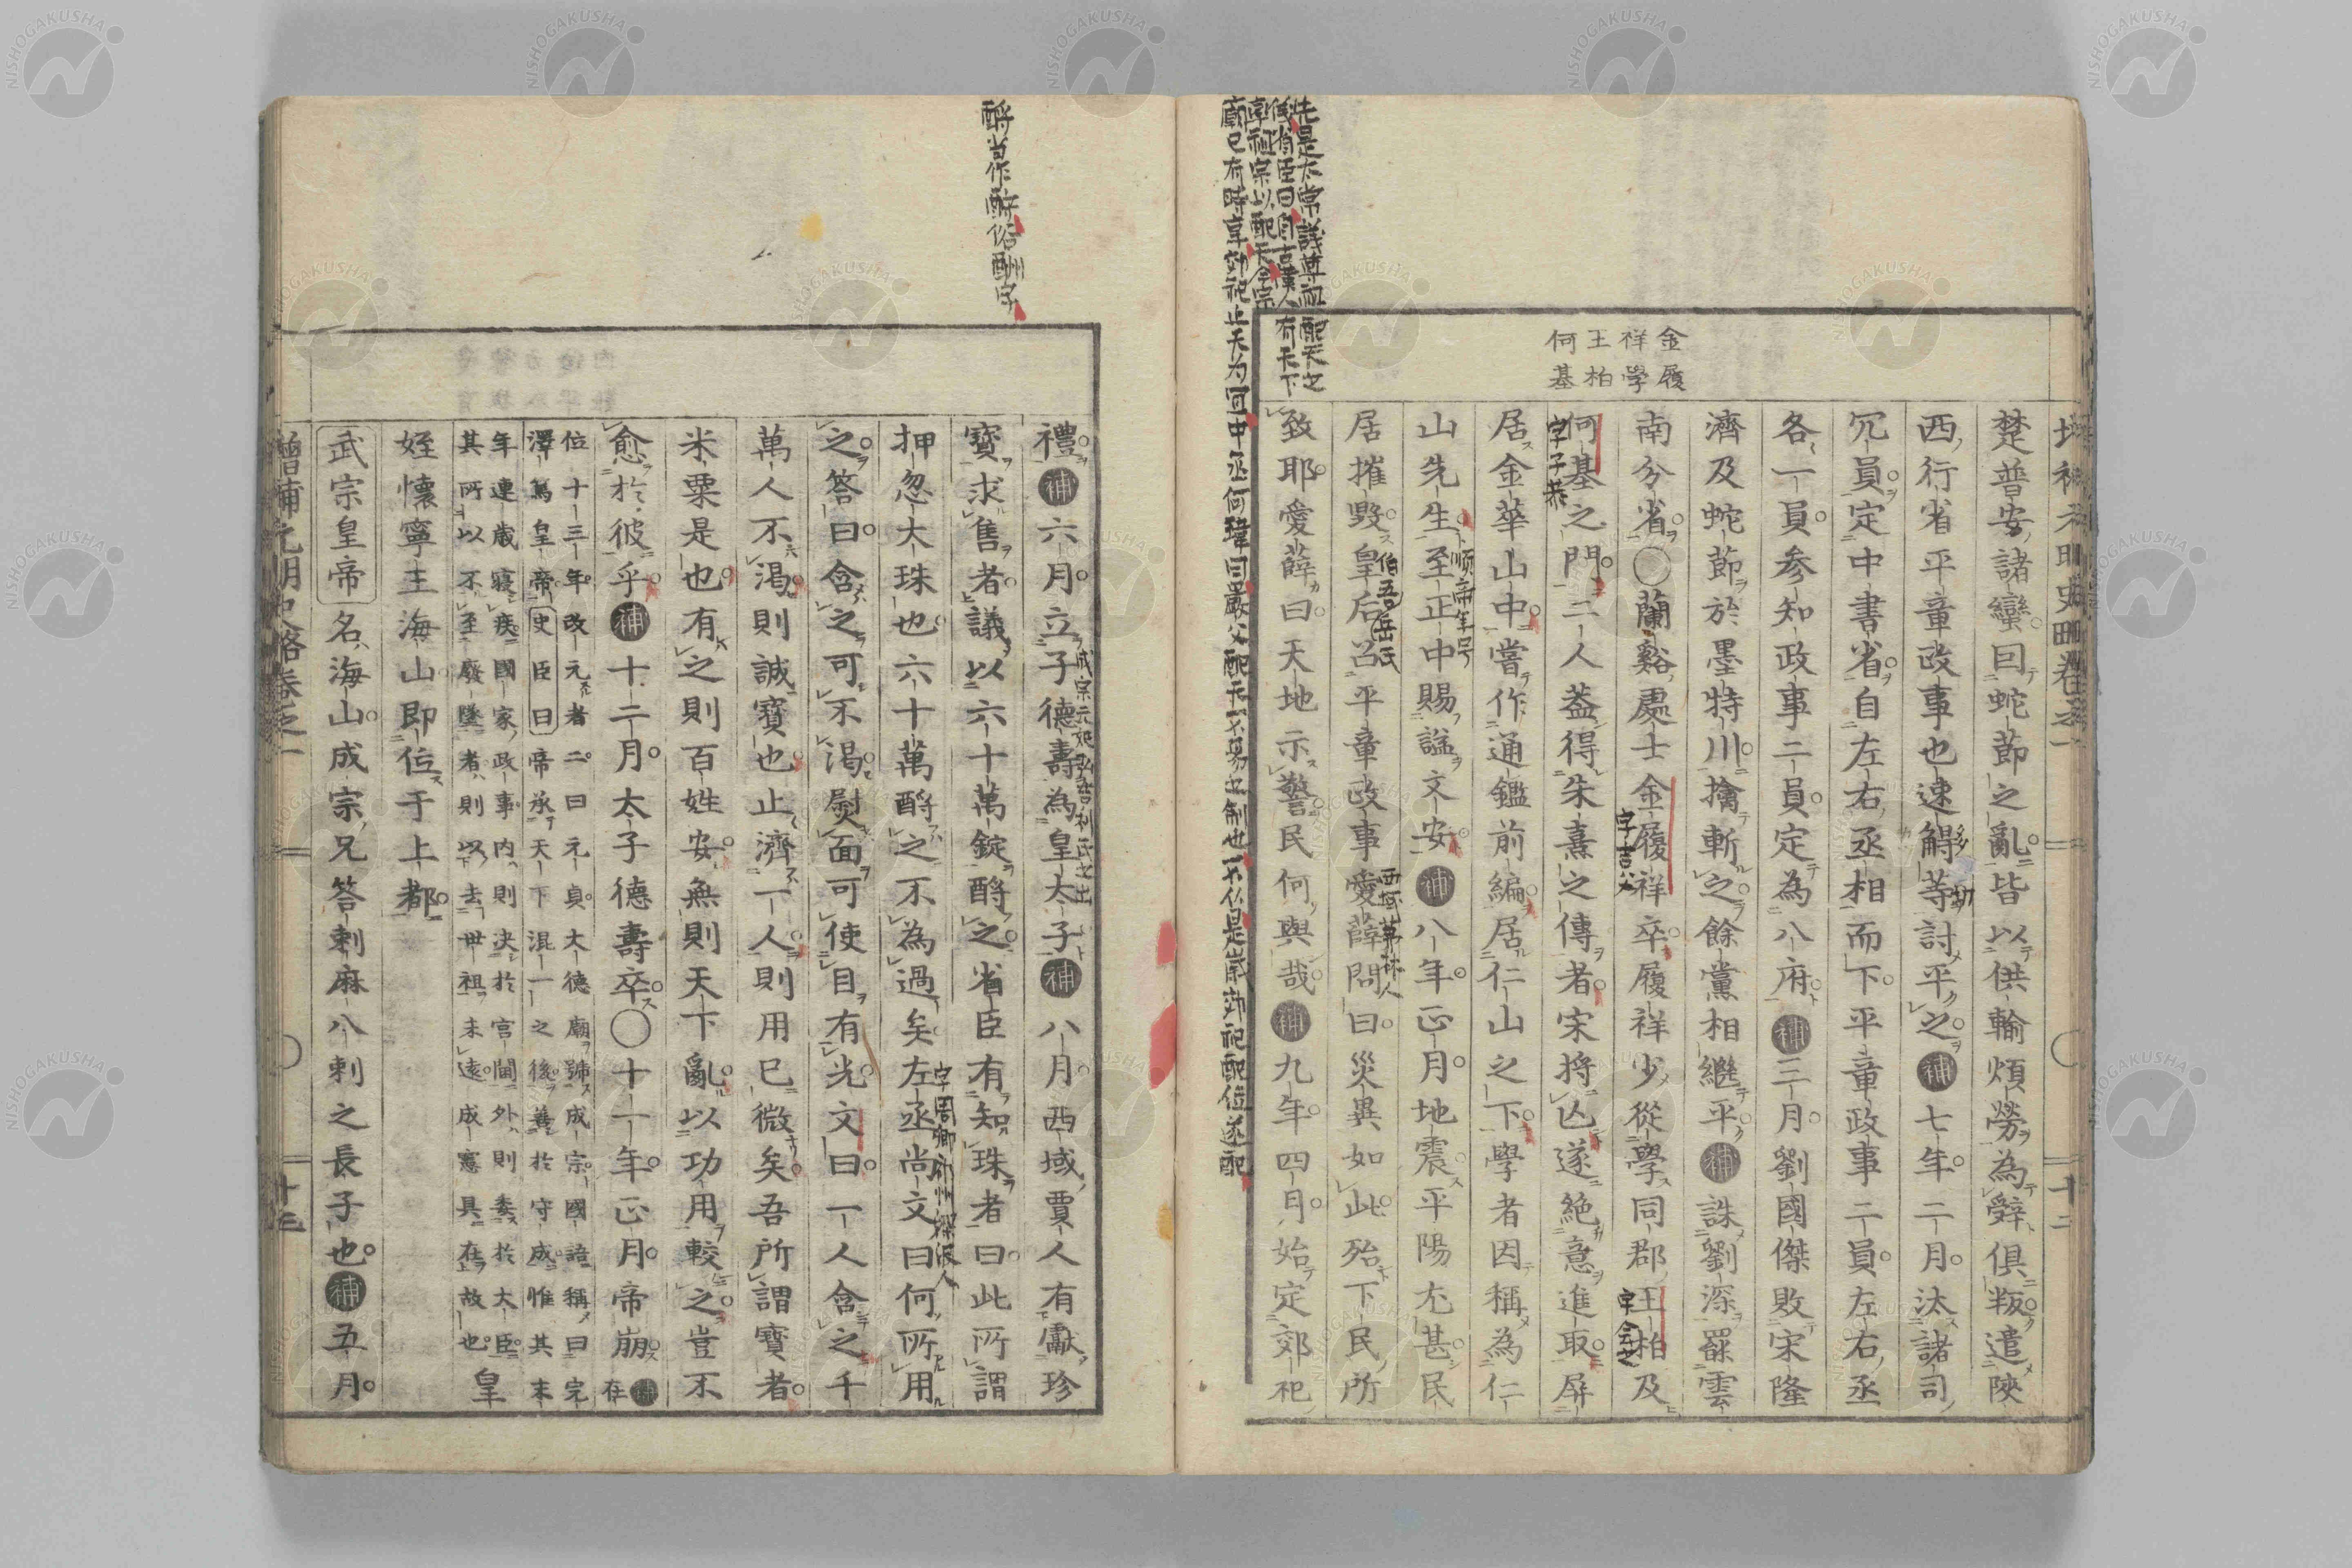 金履
祥學
王柏
何基
楚普安諸蠻回蛇節之亂皆以供輸煩勞為辭俱叛遣陝
西行省平章政事也速䚟等討平之補七年二月汰諸司
冗員定中書省自左右丞相而下平章政事二員左右丞
各一員參知政事二員定為八府補三月劉國傑敗宋隆
濟及蛇節於墨特川擒斬之餘黨相繼平補誅劉深罷雲
南分省○蘭谿處士金履祥卒履祥少從學同郡王柏及
何基之門二人蓋得朱熹之傳者宋將亾遂絕意進取屏
居金華山中嘗作通鑑前編居仁山之下學者因稱為仁
山先生至正中賜謚文安補八年正月地震平陽尤甚民
居摧毀皇后召平章政事愛薛問曰災異如此殆下民所
致耶愛薛曰天地示警民何與哉補九年四月始定郊祀
字吉父
字會之
字子恭
順帝年号
伯吾岳氏
先是太常議尊祖配天之
儀省臣曰自古漢人有天下
率祖宗以配天今宗
廟已有時享郊祀止天为可中丞何瑋曰嚴父配天不易之制也不從是歲郊祀配位遂配
酹当作酧俗酬字
禮補六月立子德壽為皇太子補八月西域賈人有獻珍
寶求售者議以六十萬錠酹之省臣有知珠者曰此所謂
押忽大珠也六十萬酹之不為過矣左丞尚文曰何所用
之答曰含之可不渴熨面可使目有光文曰一人含之千
萬人不渴則誠寶也止濟一人則用已微矣吾所謂寶者
米粟是也有之則百姓安無則天下亂以功用較之豈不
愈於彼乎補十二月太子德壽卒○十一年正月帝崩補在
位十三年改元者二曰元貞大德廟號成宗國語稱曰完
澤篤皇帝史臣曰帝承天下混一之後善於守成惟其末
年連歲寢疾國家政事內則決於宮閫外則委於大臣
其所以不至廢墜者則以去世祖未遠成憲具在故也皇
姪懷寧王海山即位于上都
武宗皇帝名海山成宗兄答剌麻八剌之長子也補五月
增補元明史略卷之一
十三